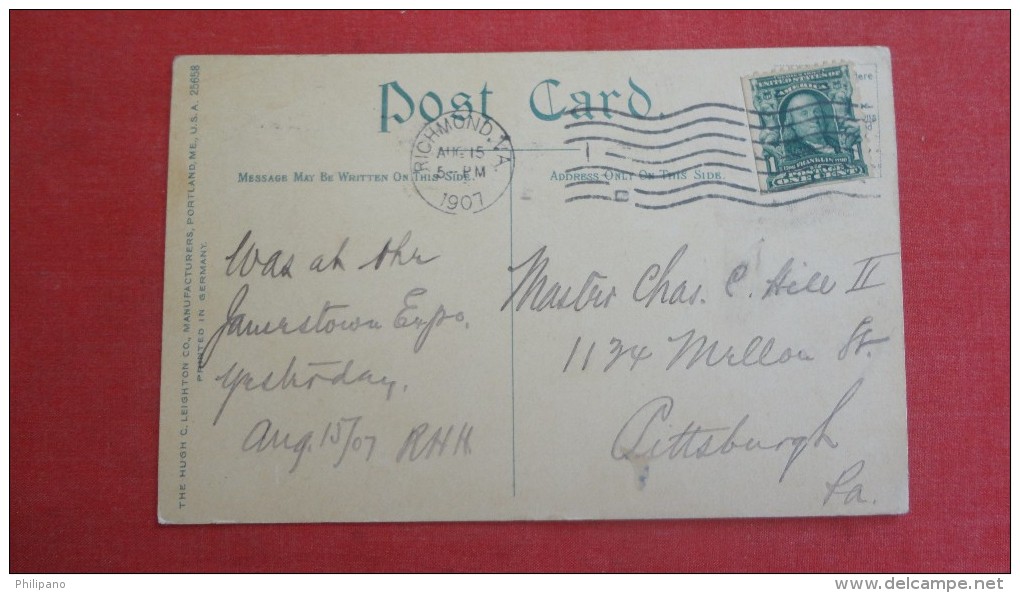 Post Card.
RICHMOND, VA.
AUG 15
5- PM
1907
UNITED STATES OF
AMERICA
FRANKLIN
POSTAGE
ONE CENT
MESSAGE MAY BE WRITTEN ON THIS SIDE.
ADDRESS ONLY ON THIS SIDE.
THE HUGH C. LEIGHTON CO., MANUFACTURERS, PORTLAND, ME., U.S.A. 25658
PRINTED IN GERMANY.
Was at the
Jamestown Expo.
yesterday.
Aug. 15/07 RHH.
Master Chas. C. Hill II
1124 Mellon St.
Pittsburgh
Pa.
Philipano
www.delcampe.net